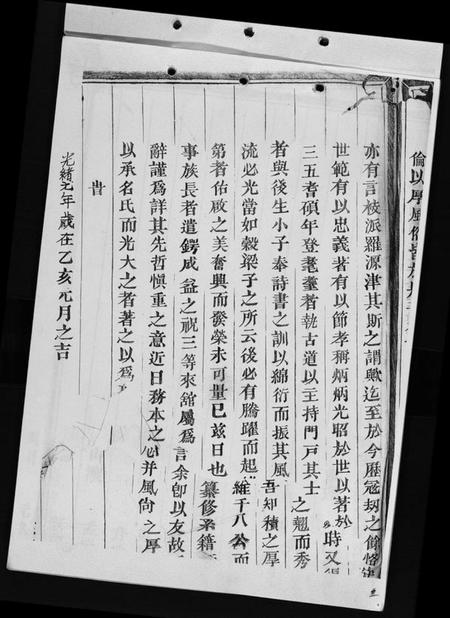 倫以厚風俗皆於
亦有言枝派羅源津其斯之謂歟迄至於今歷冠刼之餘恪
世範有以忠義著有以節孝稱炳炳光昭於世以著於時又
三五耆碩年登耄耋者執古道以主持門戸其士之翹而秀
者與後生小子奉詩書之訓以綿衍而振其風吾知積之厚
流必光當如穀梁子之所云後必有騰躍而起維千八公而
第者佑啟之美奮興而發榮未可量已兹日也纂修系籍
事族長者遣鍔成益之祝三等來舘屬為言余卽以友故
辭謹為詳其先哲慎重之意近日務本之心并風尙之厚
以承名氏而光大之者著之以為
旹
光緒元年歲在乙亥元月之吉